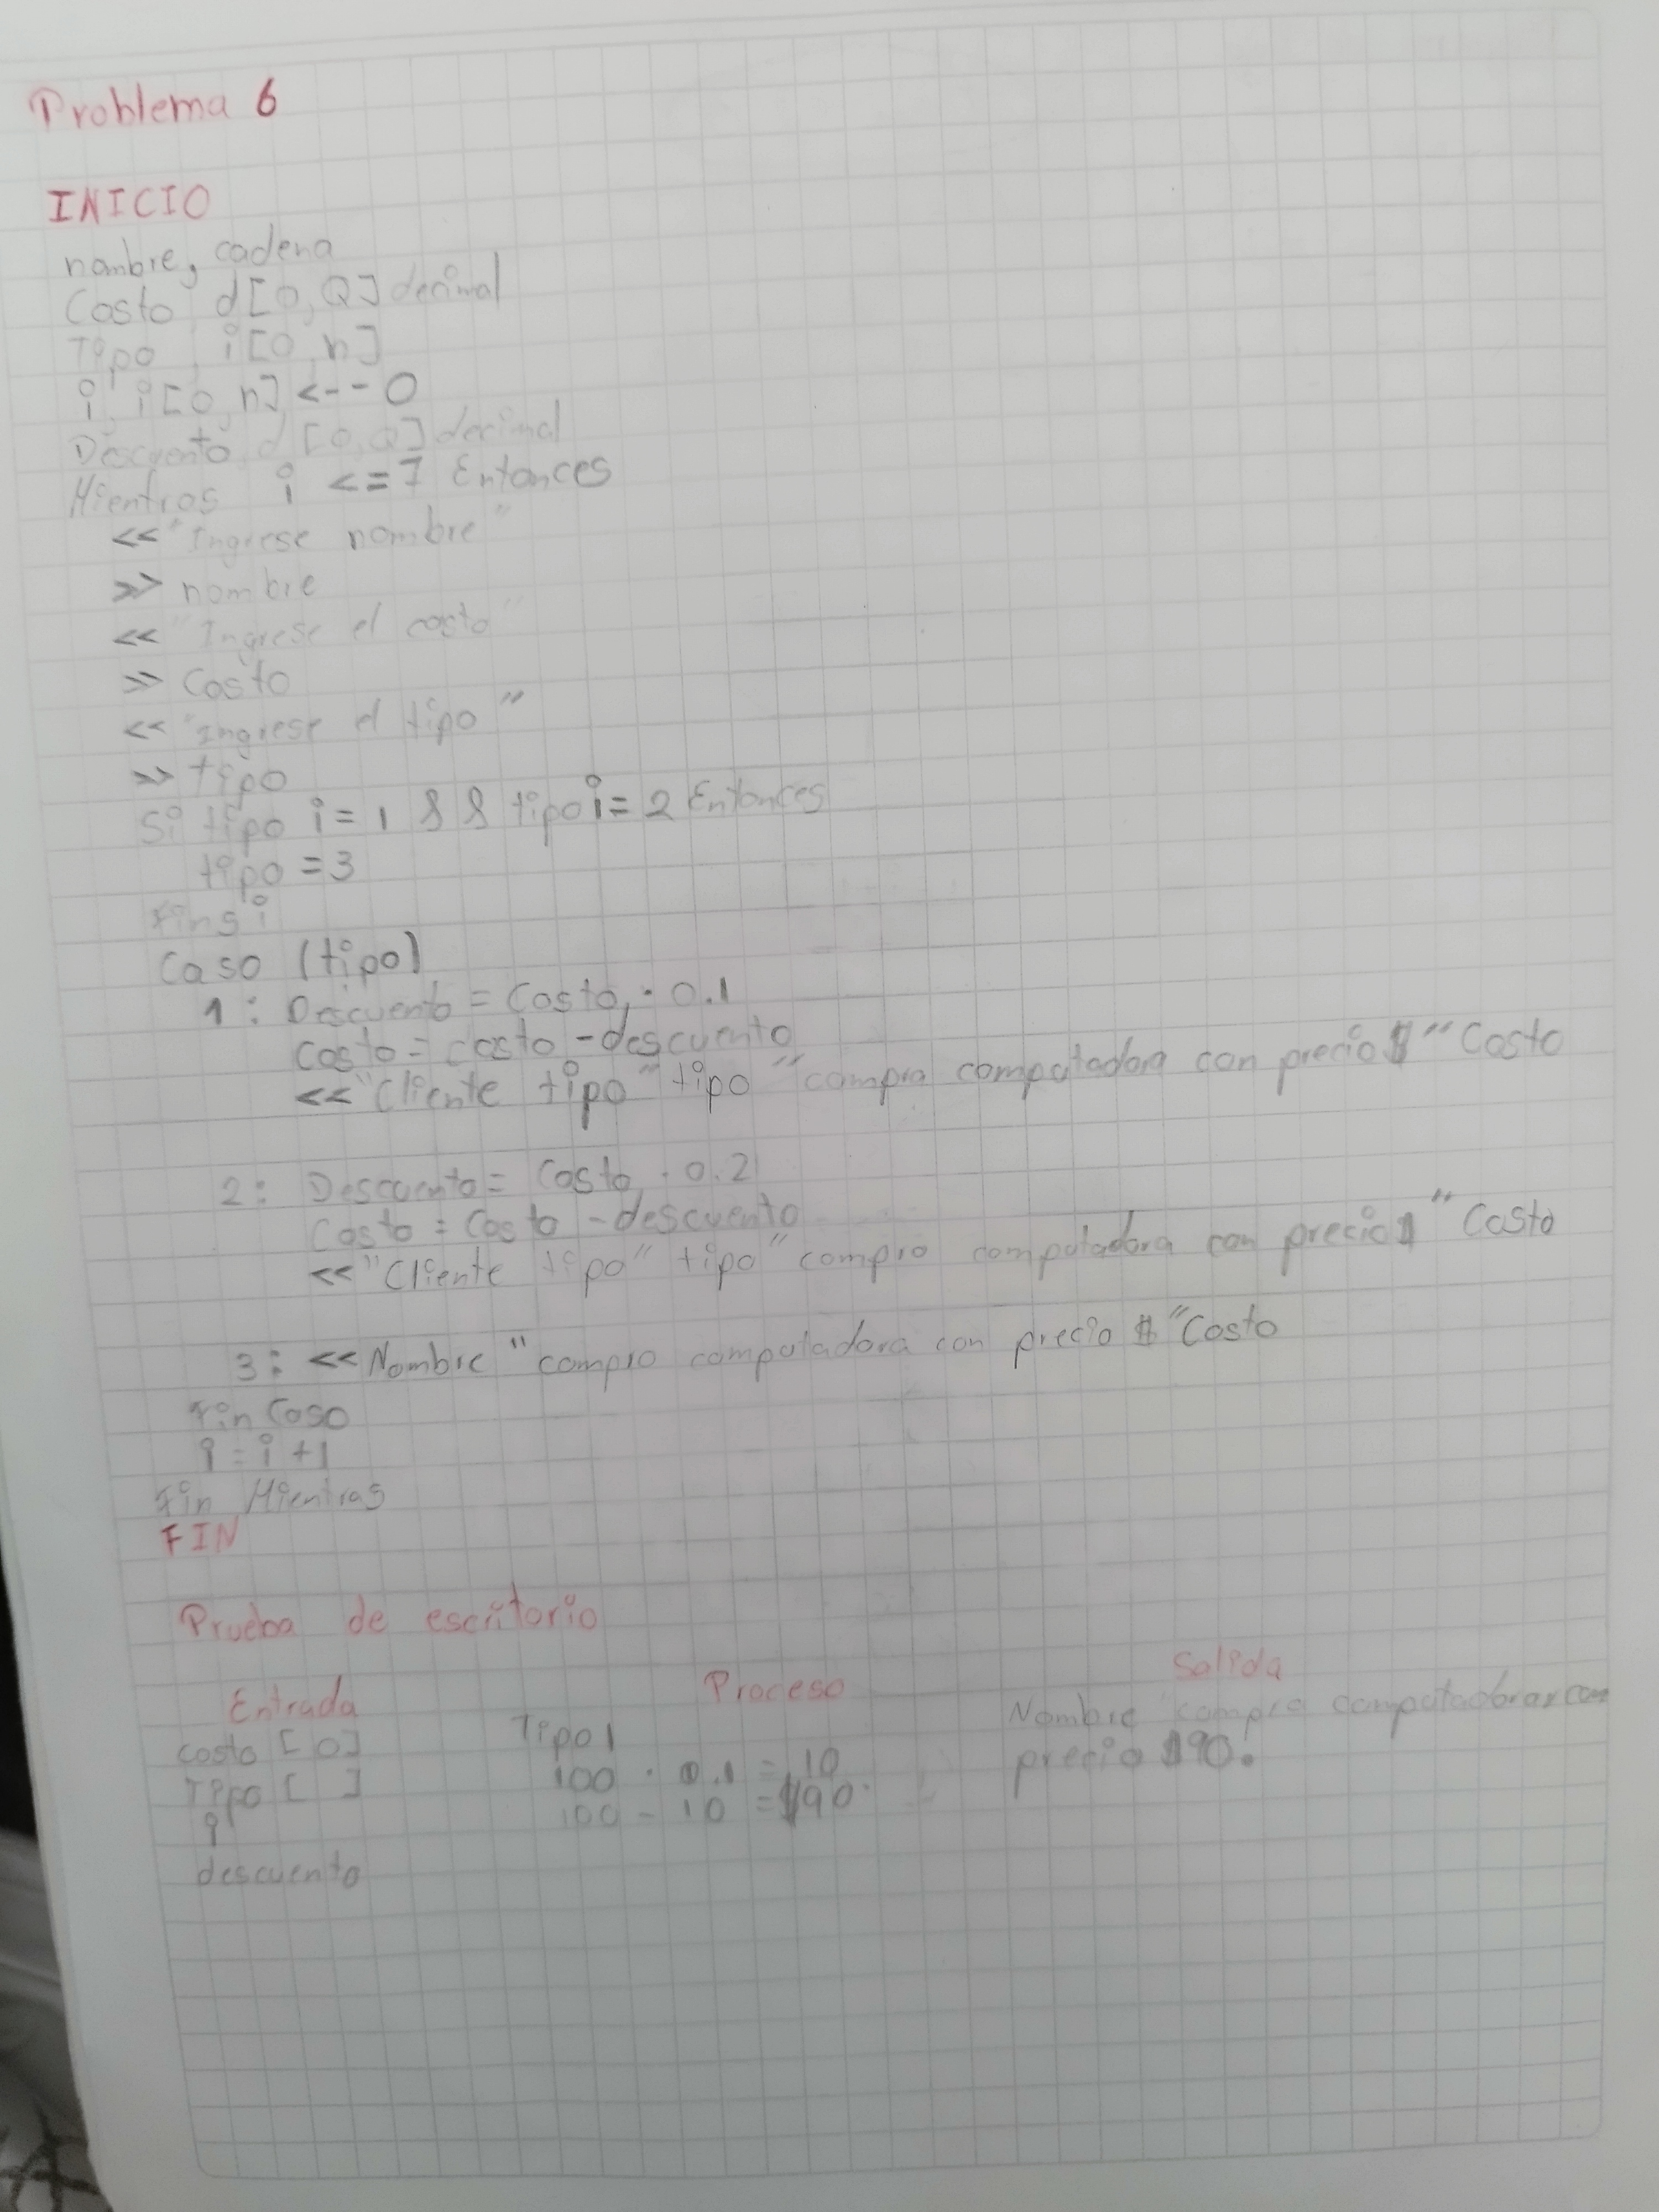 Problema 6
INICIO
nombre, cadena
Costo, d[0,Q] decimal
Tipo, i[0,n]
i, i[0,n] <-- 0
Descuento, d[0,Q] decimal
Mientras i <= 7 Entonces
<< "Ingrese nombre"
>> nombre
<< "Ingrese el costo"
>> Costo
<< "Ingrese el tipo"
>> tipo
Si tipo i= 1 && tipo i= 2 Entonces
tipo = 3
Finsi
Caso (tipo)
1: Descuento = Costo · 0.1
Costo = costo - descuento
<< "Cliente tipo" tipo "compra computadora con precio $" Costo
2: Descuento = Costo · 0.2
Costo = Costo - descuento
<< "Cliente tipo" tipo "compro computadora con precio $" Costo
3: << Nombre "compro computadora con precio $" Costo
Fin Caso
i = i + 1
Fin Mientras
FIN
Prueba de escritorio
Entrada Proceso Salida
costo [0] Tipo 1 Nombre compra computadora con
Tipo [ ] 100 · 0.1 = 10 precio $90.
i 100 - 10 = $90.
descuento